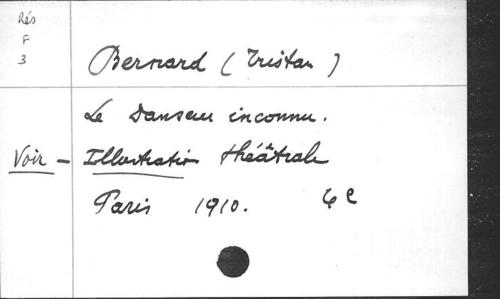 Rés
F
3
Bernard (Tristan)
Le Danseur inconnu.
Voir - Illustration théâtrale
Paris 1910.